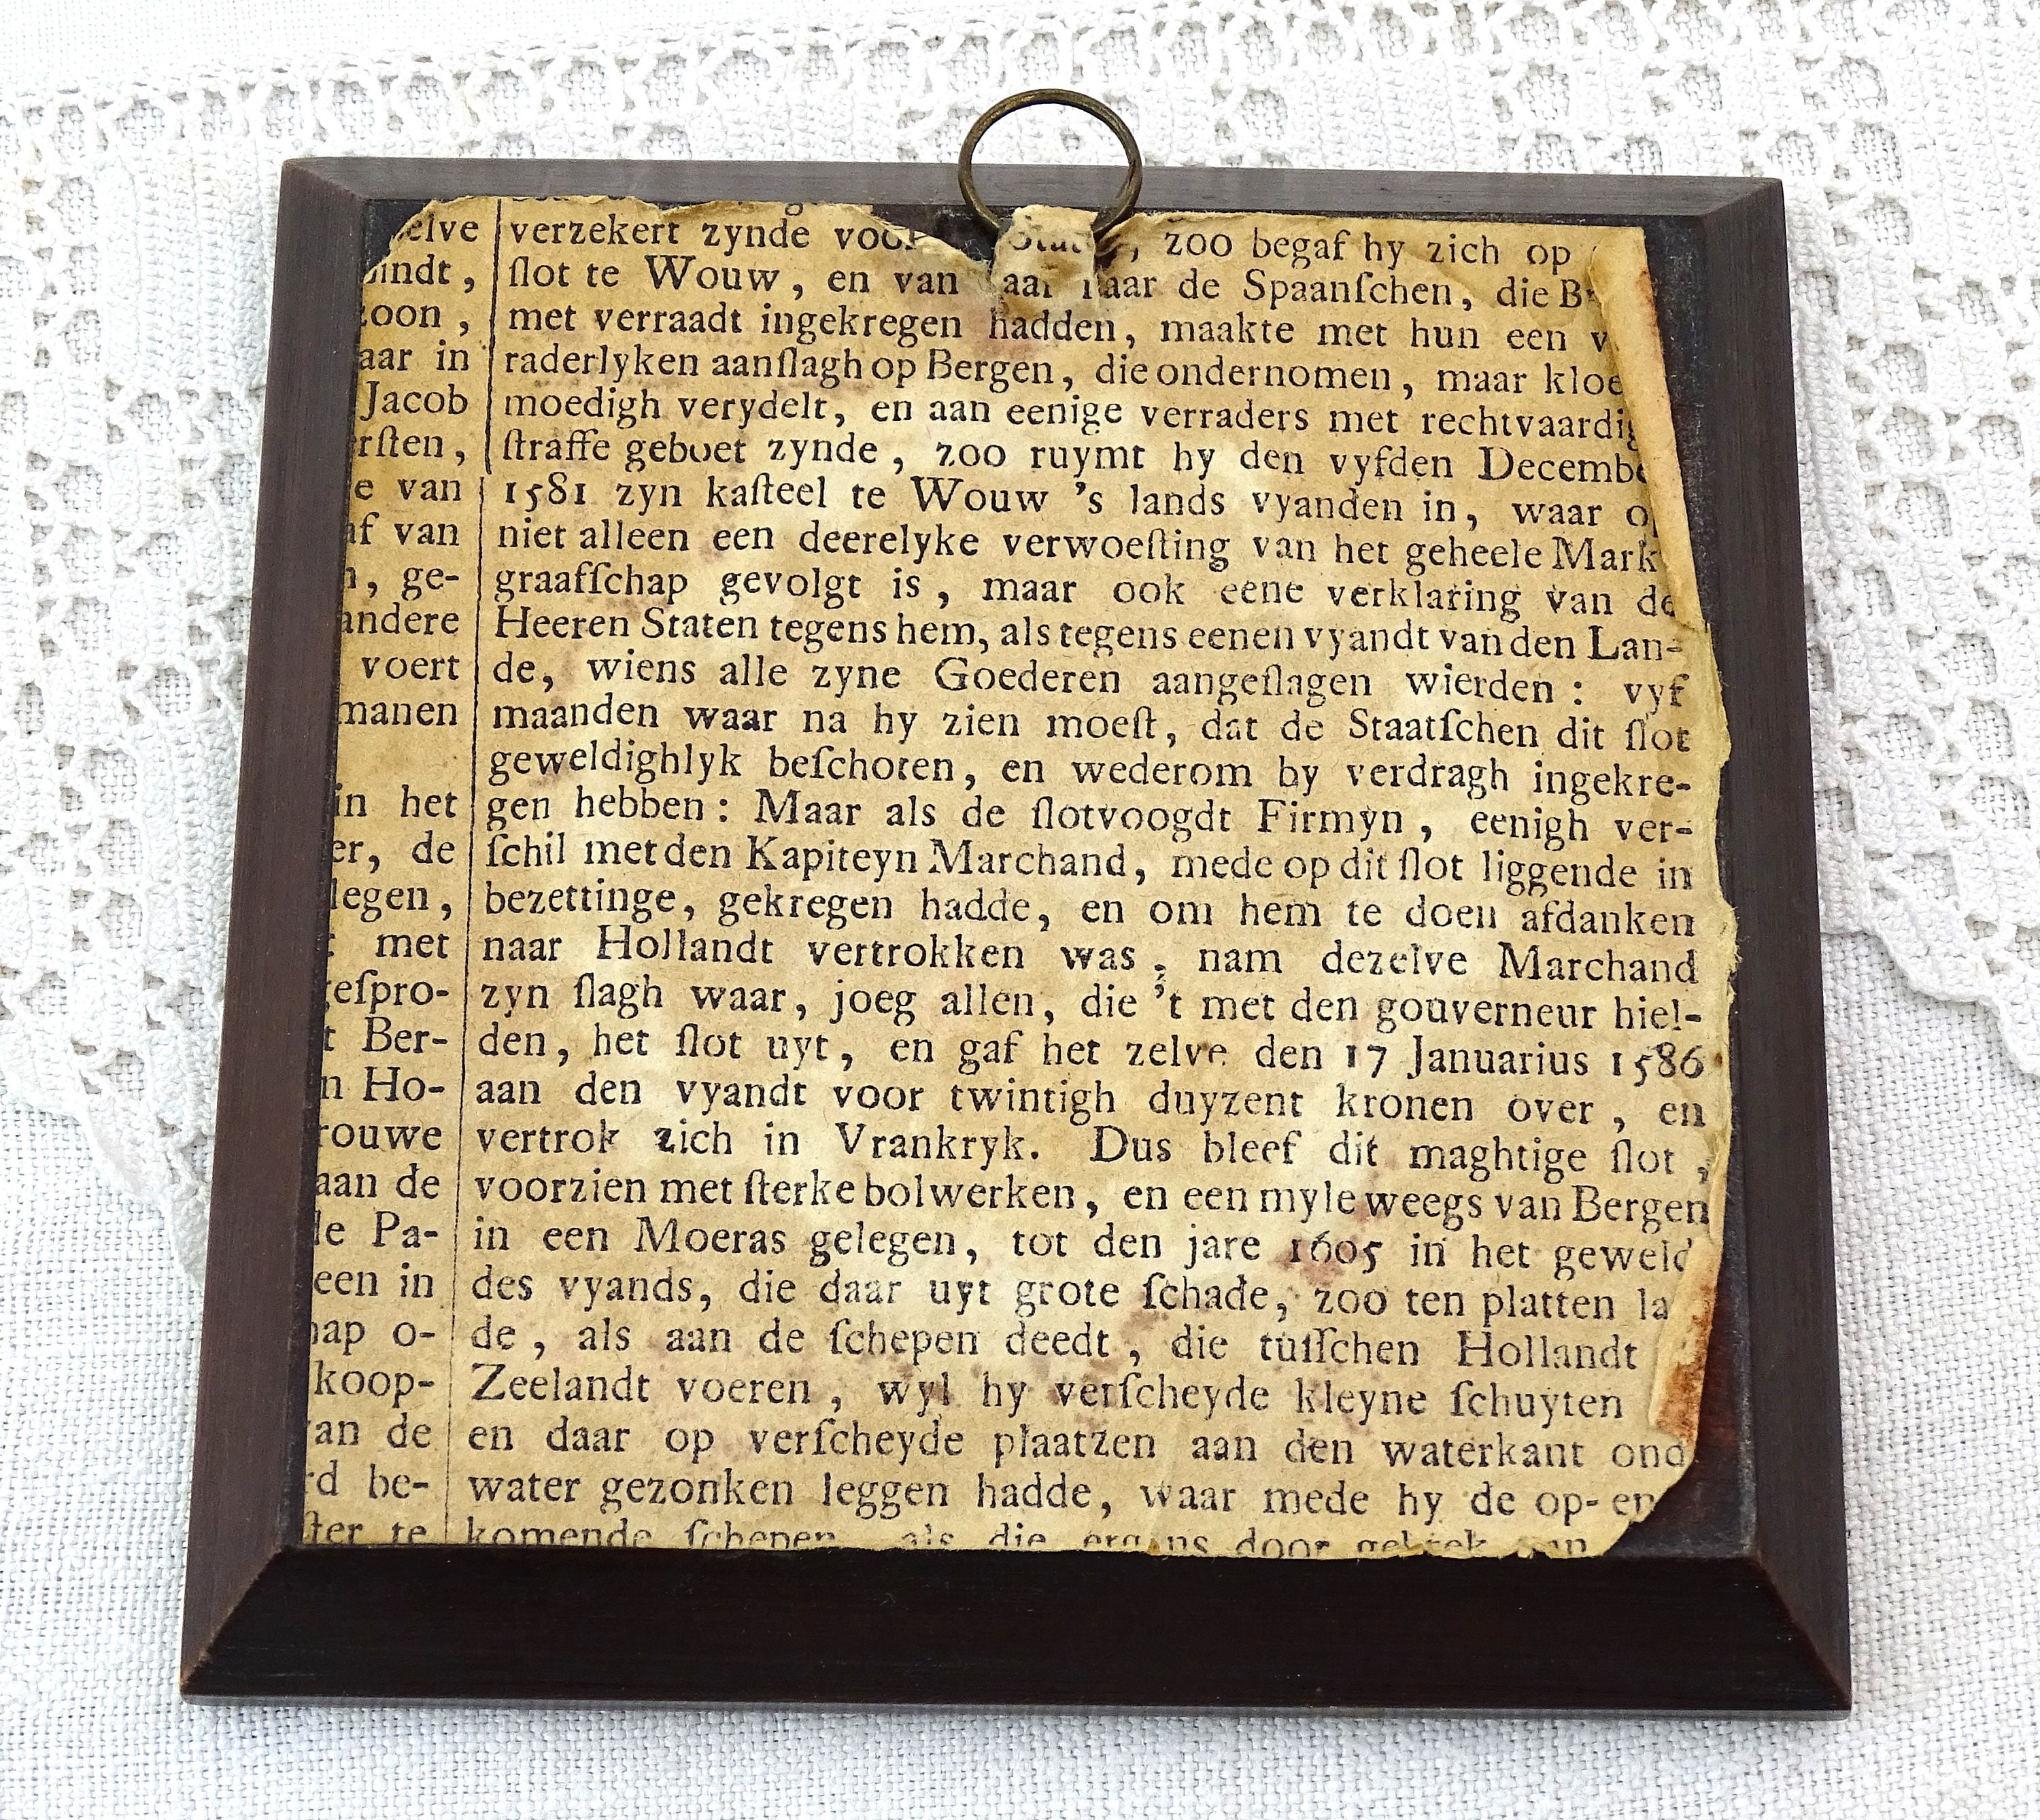 elve
indt,
zoon,
aar in
Jacob
rſten,
e van
af van
n, ge-
andere
voert
manen
in het
er, de
legen,
met
geſpro-
t Ber-
n Ho-
rouwe
aan de
de Pa-
een in
hap o-
koop-
van de
rd be-
ſter te
verzekert zynde voor , zoo begaf hy zich op
ſlot te Wouw, en van aar naar de Spaanſchen, die B
met verraadt ingekregen hadden, maakte met hun een v
raderlyken aanſlagh op Bergen, die ondernomen, maar kloe
moedigh verydelt, en aan eenige verraders met rechtvaardig
ſtraffe geboet zynde, zoo ruymt hy den vyfden Decembe
1581 zyn kaſteel te Wouw 's lands vyanden in, waar op
niet alleen een deerelyke verwoeſting van het geheele Mark-
graafſchap gevolgt is, maar ook eene verklaring van de
Heeren Staten tegens hem, als tegens eenen vyandt van den Lan-
de, wiens alle zyne Goederen aangeſlagen wierden: vyf
maanden waar na hy zien moeſt, dat de Staatſchen dit ſlot
geweldighlyk beſchoten, en wederom by verdragh ingekre-
gen hebben: Maar als de ſlotvoogdt Firmyn, eenigh ver-
ſchil met den Kapiteyn Marchand, mede op dit ſlot liggende in
bezettinge, gekregen hadde, en om hem te doen afdanken
naar Hollandt vertrokken was, nam dezelve Marchand
zyn ſlagh waar, joeg allen, die 't met den gouverneur hiel-
den, het ſlot uyt, en gaf het zelve den 17 Januarius 1586
aan den vyandt voor twintigh duyzent kronen over, en
vertrok zich in Vrankryk. Dus bleef dit maghtige ſlot,
voorzien met ſterke bolwerken, en een myle weegs van Bergen
in een Moeras gelegen, tot den jare 1605 in het geweld
des vyands, die daar uyt grote ſchade, zoo ten platten la
de, als aan de ſchepen deedt, die tuſſchen Hollandt
Zeelandt voeren, wyl hy verſcheyde kleyne ſchuyten
en daar op verſcheyde plaatzen aan den waterkant ond
water gezonken leggen hadde, waar mede hy de op- en
komende ſchepen als die ergens door gebrek van